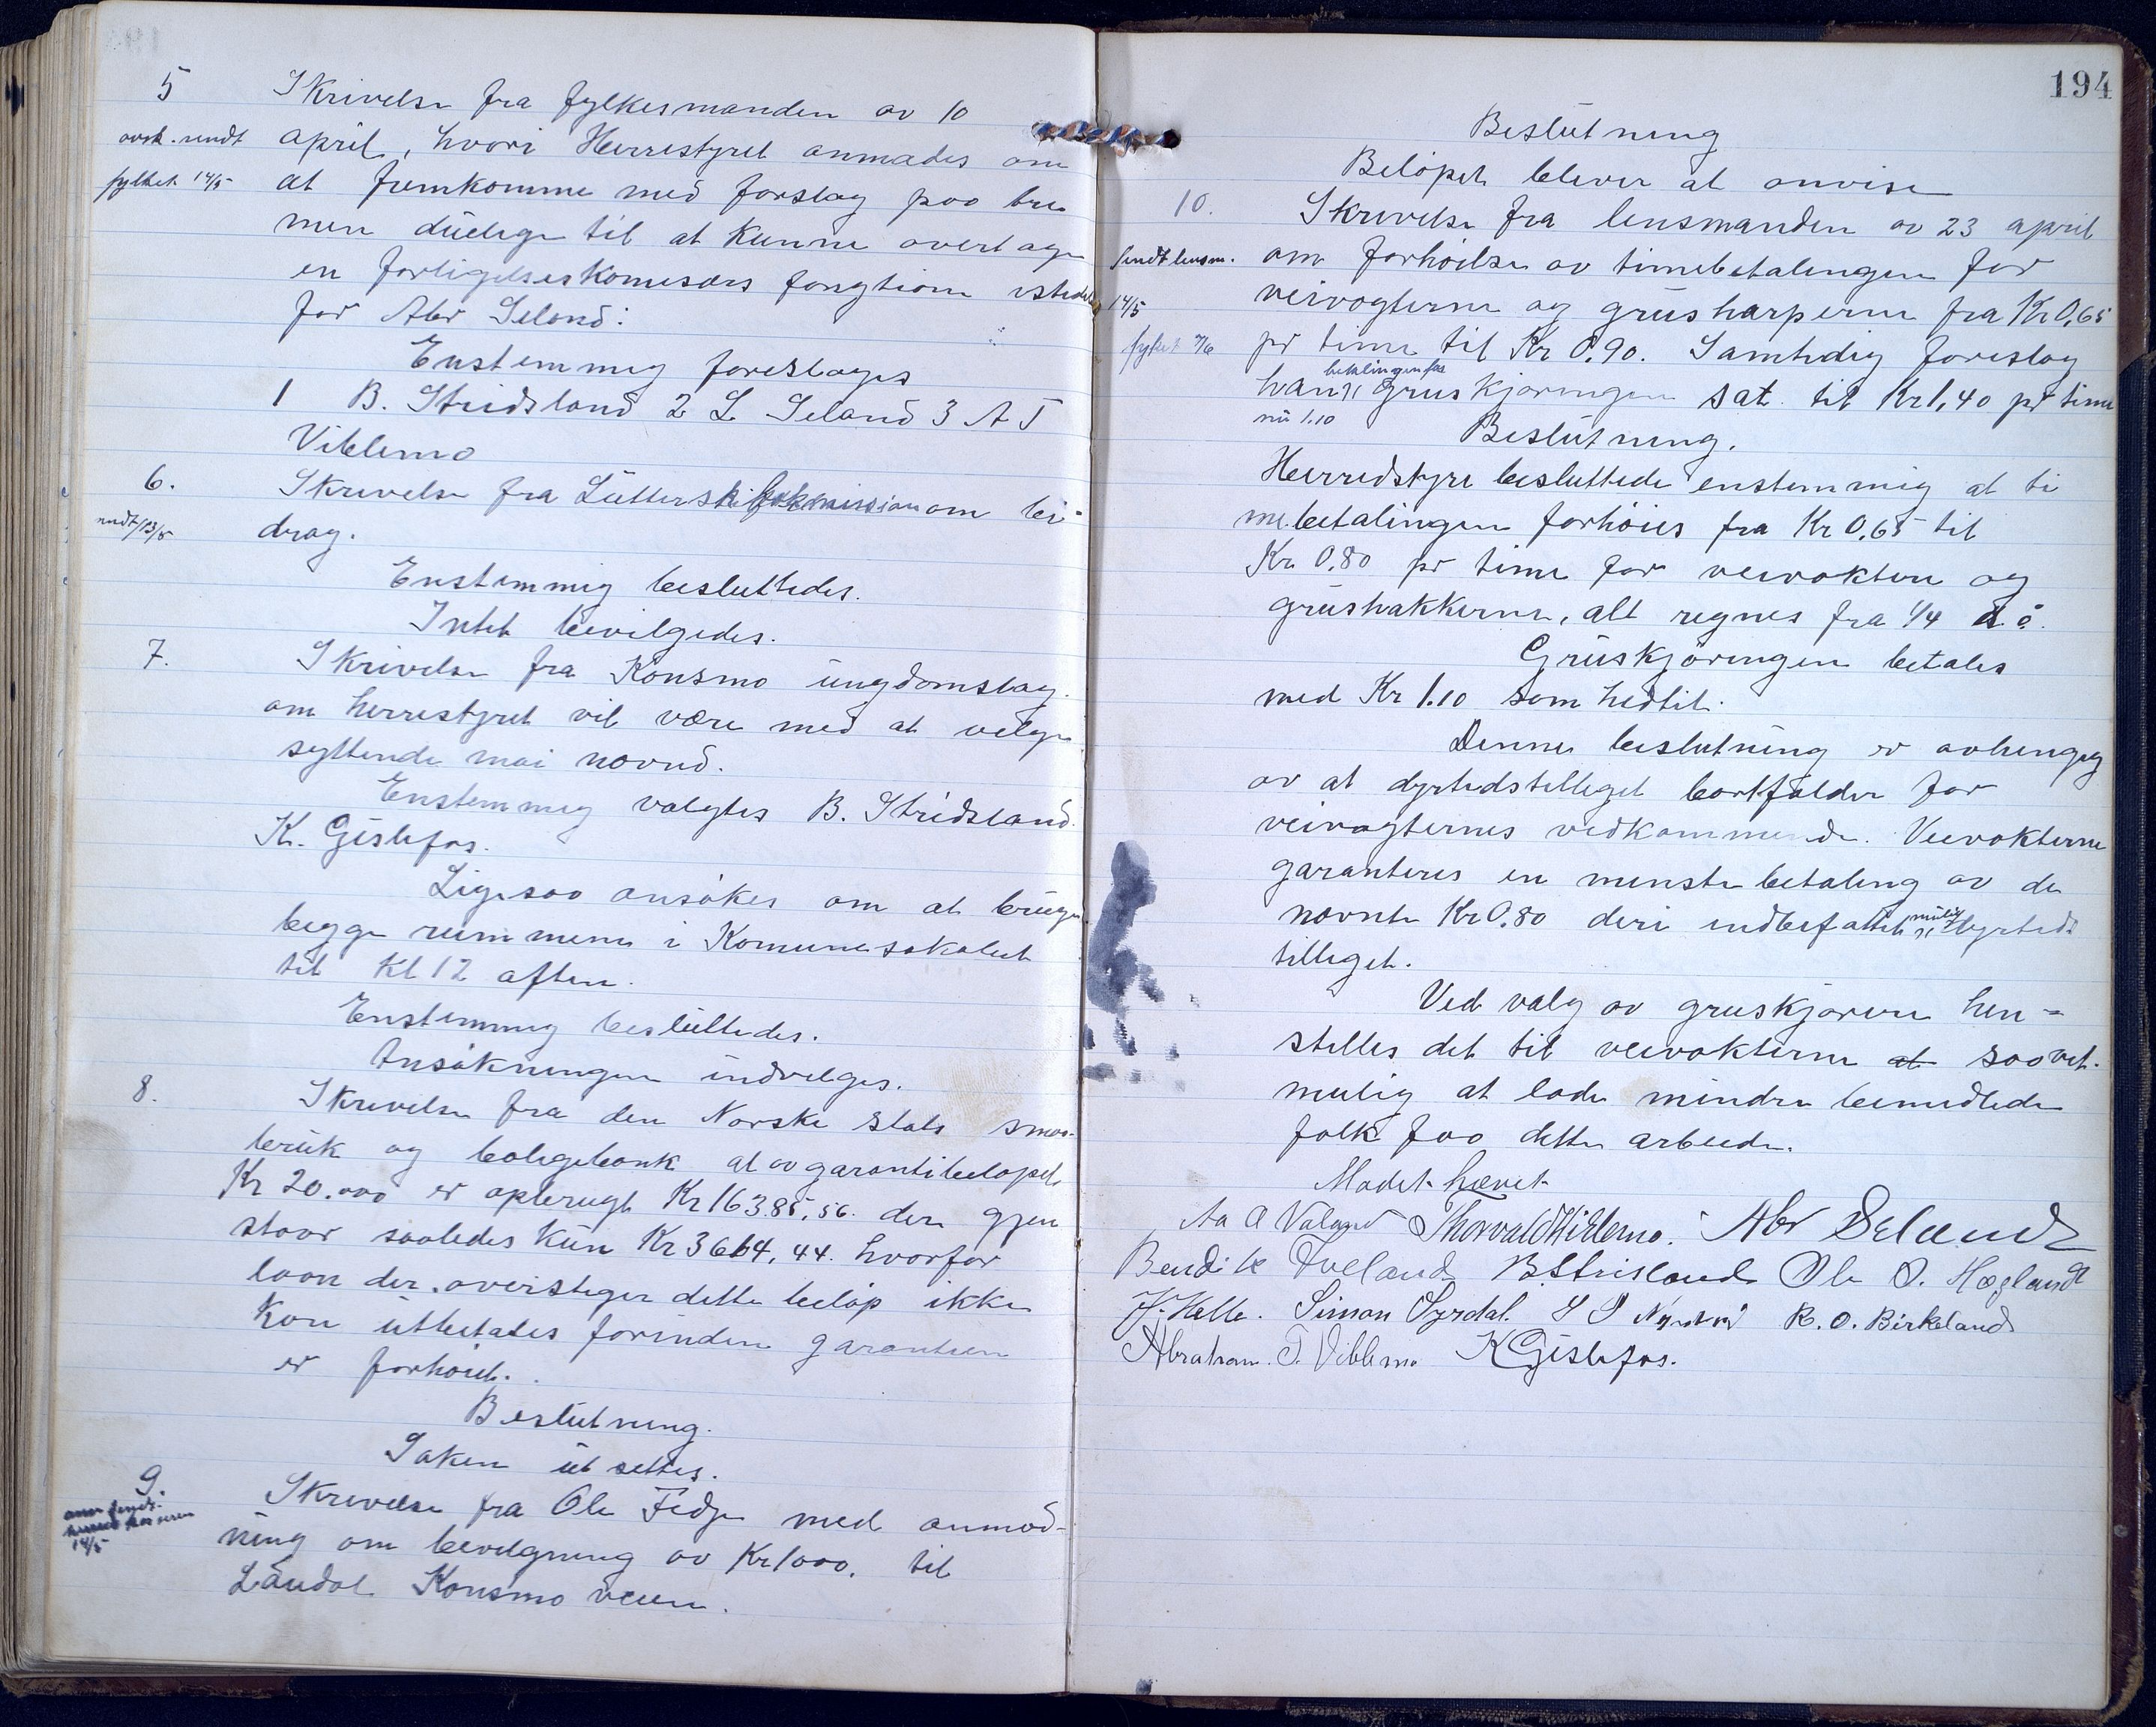 5 Skrivelse fra fylkesmanden av 10
avsk. sendt april, hvori Herrestyret anmodes om
fylket 14/5 at fremkomme med forslag paa tre
men duelige til at kunne overtage
en forligelseskomisærs fongtion istedet
for Abr Seland:
Enstemmig foreslages
1 B. Stridsland 2 L Seland 3 A T
Viblemo
6. Skrivelse fra Lutterske om bi-
sendt 13/5 drag.
Enstemmig besluttedes.
Intet bevilgedes.
7. Skrivelse fra Konsmo ungdomslag.
om herrestyret vil være med at velge
syttende mai nævnd.
Enstemmig valgtes B. Stridsland
K. Gislefos.
Ligesaa ansøkes om at bruge
begge rummene i Komunelokalet
til Kl 12 aften.
Enstemmig besluttedes.
Ansøkningen indvilges.
8. Skrivelse fra den Norske stats smaa-
bruk og boligbank at av garantibeløpet
Kr 20.000 er opbrugt Kr 16385,56. der gjen
staar saaledes kun Kr 3614,44. hvorfor
laan der overstiger dette beløp ikke
kan utbetales forinden garantien
er forhøiet.
Beslutning.
Saken ut settes.
9. Skrivelse fra Ole Fidje med anmod-
14/5 ning om bevilgning av Kr 1000. til
Laudal Konsmo veien.
194
Beslutning
Beløpet blever at anvise
10. Skrivelse fra lensmanden av 23 april
sendt lensm. om forhøielse av timebetalingen for
14/5 veivogterne og grusharperne fra Kr 0,65
fylket 7/6 pr time til Kr 0.90. Samtidig foreslog
betalingen for
han gruskjøringen sat til Kr 1,40 pr time
nu 1.10 Beslutning.
Herredstyre besluttede enstemmig at ti
mebetalingen forhøies fra Kr 0,65 til
Kr 0,80 pr time for veivokterne og
grushakkerne, alt regnes fra 1/4 d å.
Gruskjøringen betales
med Kr 1.10 som hedtil.
Denne beslutning er avhengig
av at dyrtidstilleget bortfalder for
veivogternes vedkommende. Veivokterne
garanteres en minste betaling av de
nævnte Kr 0.80 deri indbefattet mulig dyrtids
tilleget.
Ved valg av gruskjørere hen-
stilles det til veivokterne at saavet.
mulig at lade mindre bemidlede
folk faa dette arbeide.
Mødet hævet
Aa A Valand Thorvald Hiblemo. Abr Seland
Bendik Tveland B Strisland Ole O. Hægland
H. Helle. Simon Syrdal. R. O. Birkeland
Abraham. T. Viblemo K Gislefos.